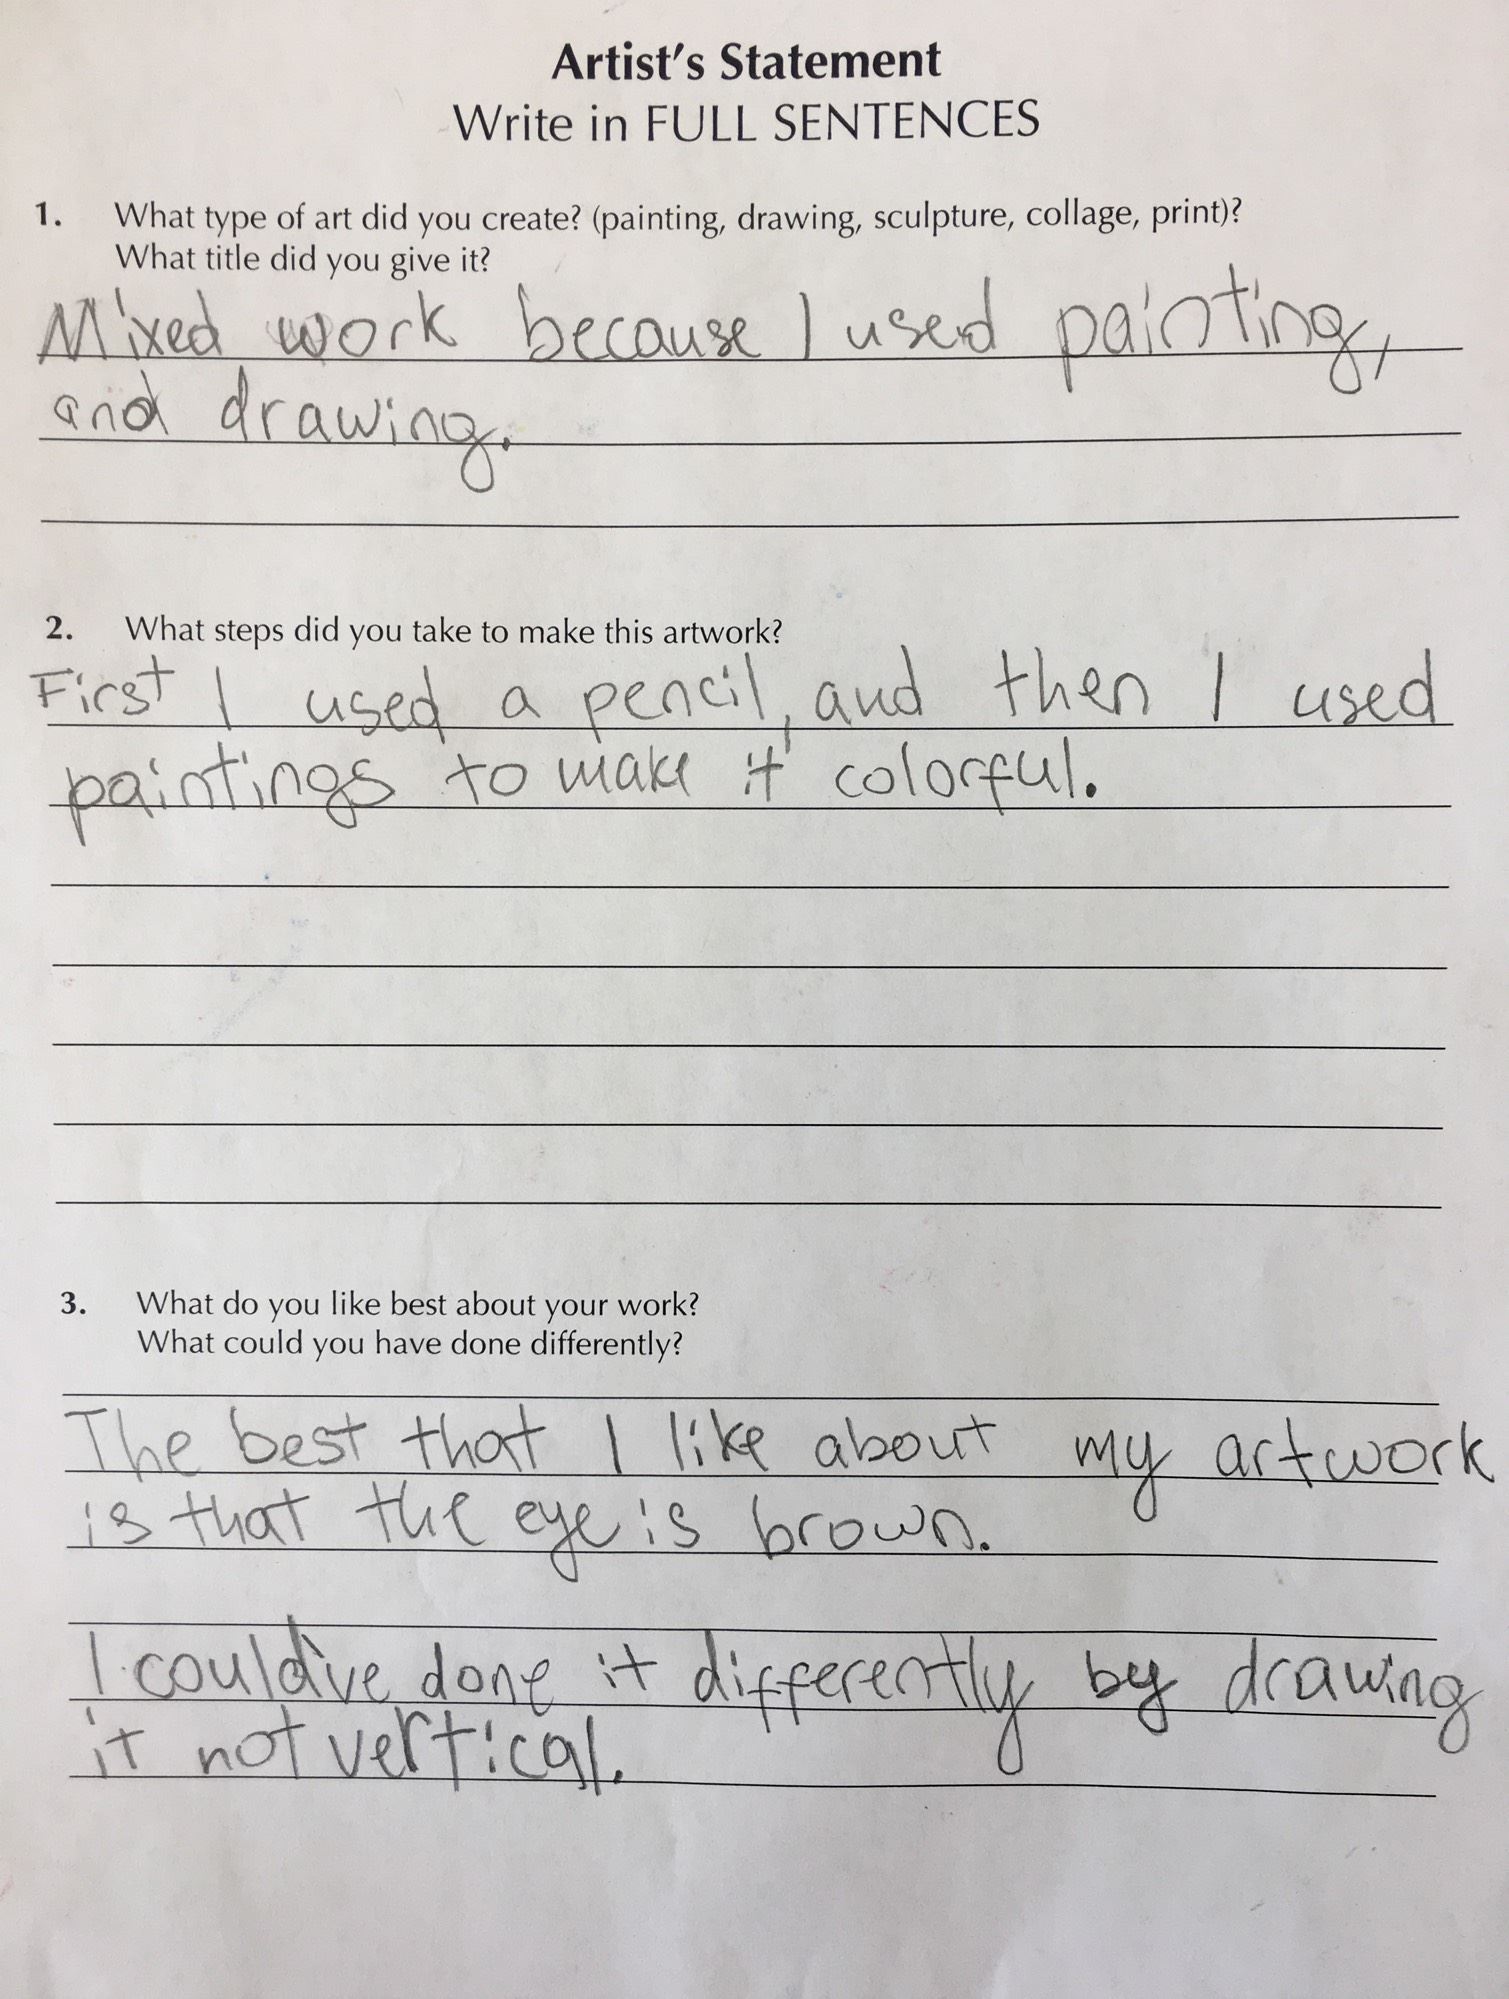 Artist's Statement
Write in FULL SENTENCES
1. What type of art did you create? (painting, drawing, sculpture, collage, print)?
What title did you give it?
Mixed work because I used painting,
and drawing.
2. What steps did you take to make this artwork?
First I used a pencil, and then I used
paintings to make it colorful.
3. What do you like best about your work?
What could you have done differently?
The best that I like about my artwork
is that the eye is brown.
I could've done it differently by drawing
it not vertical.